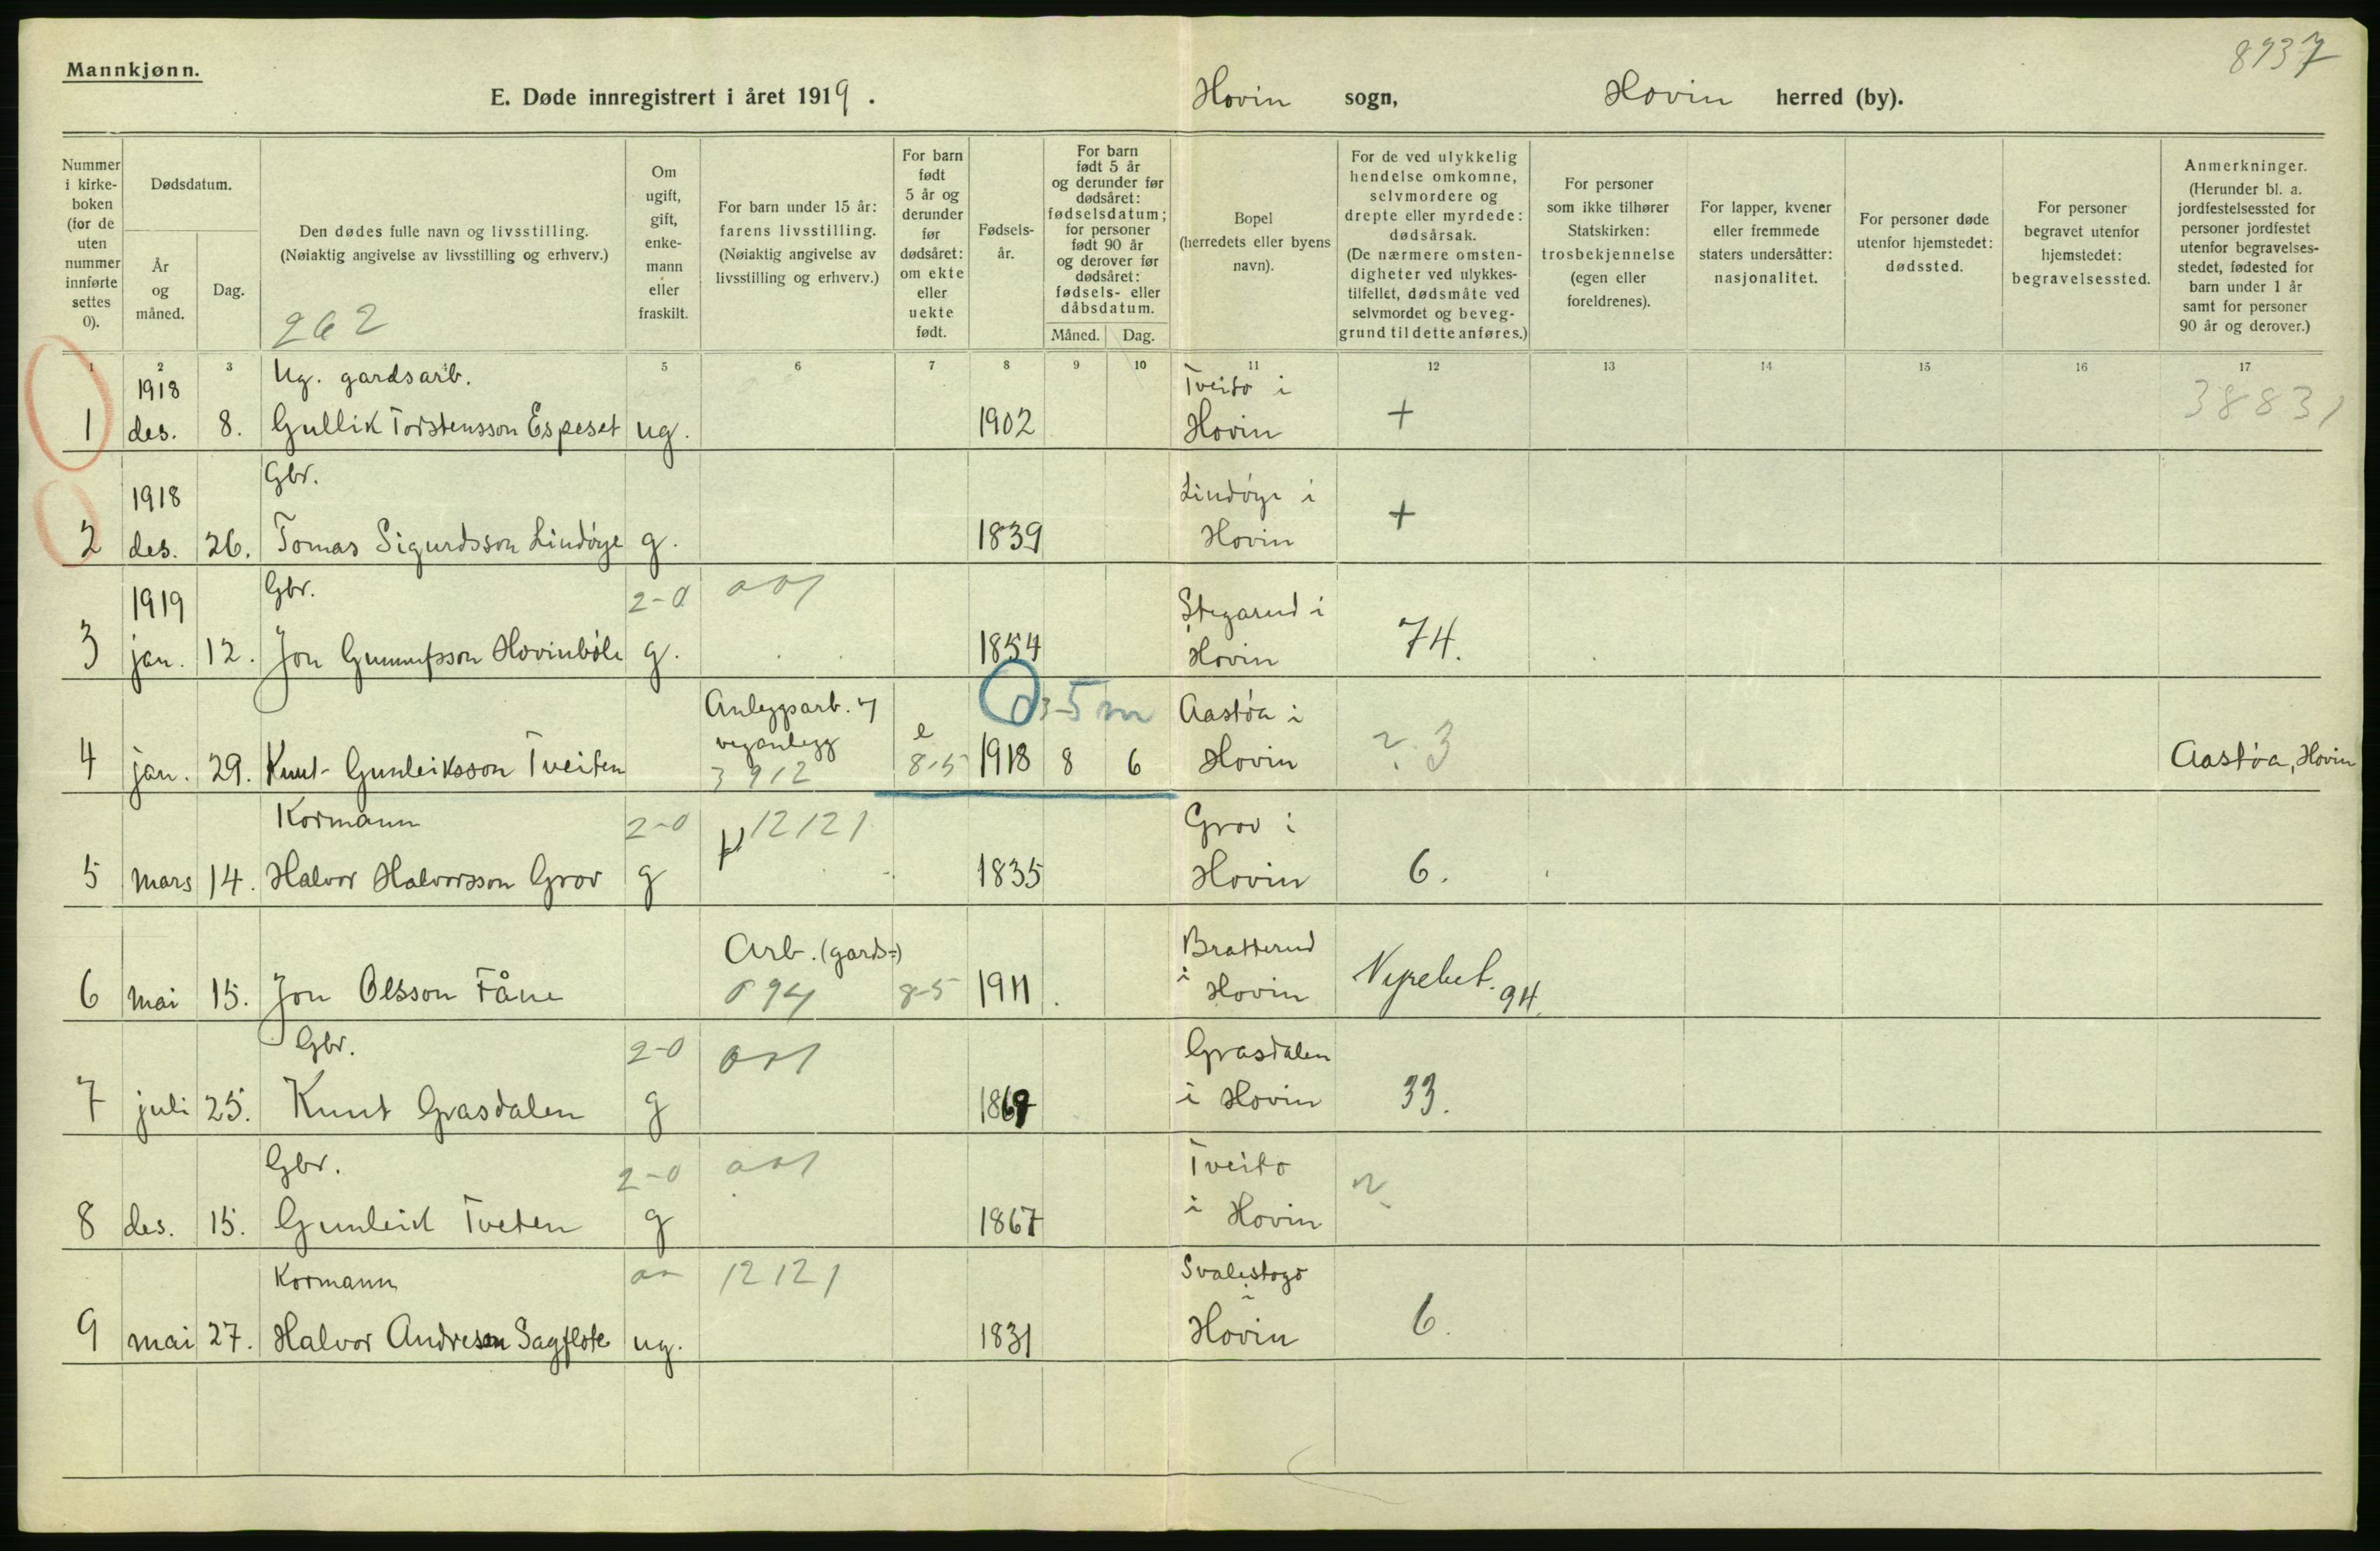 8937
Mannkjønn.
E. Døde innregistrert i året 1919. Hovin sogn, Hovin herred (by).
Nummer i kirkeboken (for de uten nummer innførte settes 0).
Dødsdatum.
År og måned.
Dag.
Den dødes fulle navn og livsstilling.
(Nøiaktig angivelse av livsstilling og erhverv.)
262
Om ugift, gift, enkemann eller fraskilt.
For barn under 15 år: farens livsstilling.
(Nøiaktig angivelse av livsstilling og erhverv.)
For barn født 5 år og derunder før dødsåret: om ekte eller uekte født.
Fødselsår.
For barn født 5 år og derunder før dødsåret: fødselsdatum; for personer født 90 år og derover før dødsåret: fødsels- eller dåbsdatum.
Måned.
Dag.
Bopel (herredets eller byens navn).
For de ved ulykkelig hendelse omkomne, selvmordere og drepte eller myrdede: dødsårsak.
(De nærmere omstendigheter ved ulykkestilfellet, dødsmåte ved selvmordet og beveggrund til dette anføres.)
For personer som ikke tilhører Statskirken: trosbekjennelse (egen eller foreldrenes).
For lapper, kvener eller fremmede staters undersåtter: nasjonalitet.
For personer døde utenfor hjemstedet: dødssted.
For personer begravet utenfor hjemstedet: begravelsessted.
Anmerkninger.
(Herunder bl. a. jordfestelsessted for personer jordfestet utenfor begravelsesstedet, fødested for barn under 1 år samt for personer 90 år og derover.)
1 2 3 5 6 7 8 9 10 11 12 13 14 15 16 17
1918 Ug. gardsarb. Tveito i 38831
1 des. 8. Gullik Torstensson Espeset ug. 1902 Hovin +
1918 Gbr. Lindøye i
2 des. 26. Tomas Sigurdsson Lindøye g. 1839 Hovin +
1919 Gbr. 2-0 Stegarud i
3 jan. 12. Jon Gunnufsson Hovinbøle g. 1854 Hovin 74.
Anleggsarb. e 5 m Aastøa i
4 jan. 29. Knut Gunleiksson Tveiten veganlegg 3912 8-5 1918 8 6 Hovin ? 3 Aastøa, Hovin
Kormann 2-0 12121 Grov i
5 mars 14. Halvor Halvorsson Grov g 1835 Hovin 6.
Arb. (gards-) Bratterud
6 mai 15. Jon Olsson Fåne 8-5 1911 i Hovin 94.
Gbr. 2-0 Grasdalen
7 juli 25. Knut Grasdalen g i Hovin 33.
Gbr. 2-0 Tveito
8 des. 15. Gunleik Tveten g 1867 i Hovin
Kormann 12121 i
9 mai 27. Halvor Andresen Sagflote ug. 1831 Hovin 6.